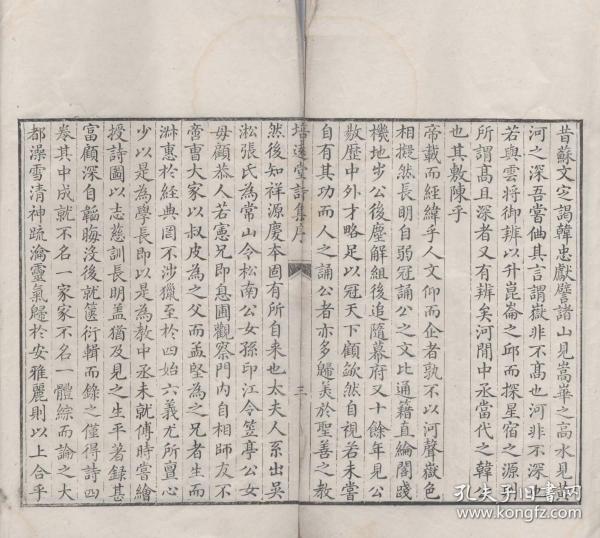 昔蘇文定謁韓忠獻譬諸山見嵩華之高水見黃
河之深吾嘗䌷其言謂嶽非不高也河非不深也
若與雲將御辨以升崑崙之邱而探星宿之源則
所謂高且深者又有辨矣河閒中丞當代之韓公
也其敷陳乎
帝載而經緯乎人文仰而企者孰不以河聲嶽色
相擬然長明自弱冠誦公之文比通籍直綸閣踐
機地步公後塵解組後追隨幕府又十餘年見公
敭歷中外才略足以冠天下顧欿然自視若未嘗
自有其功而人之誦公者亦多歸美於聖善之教
培遠堂詩集序
三
然後知祥源慶本固有所自来也太夫人系出吳
淞張氏為常山令松南公女孫印江令笠亭公女
毋顧恭人若憲兄即息圃觀察門內自相師友不
啻曹大家以叔皮為之父而孟堅為之兄者生而
淋惠於經典罔不涉獵至於四始六義尤所亶心
少以是為學長即以是為教中丞未就傅時嘗繪
授詩圖以志慈訓長明盖猶及見之生平著録甚
富顧深自韜晦没後就篋衍輯而錄之僅得詩四
卷其中成就不名一家家不名一體綜而論之大
都澡雪清神疏瀹靈氣歸於安雅麗則以上合乎
孔夫子旧书网
www.kongfz.com